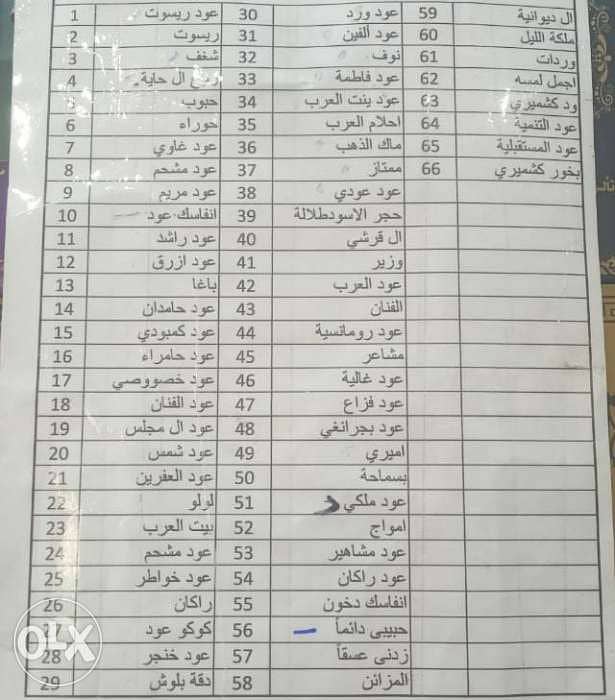 1 عود ريسوت
2 ريسوت
3 شغف
4 ريع ال حاية
5 حبوب
6 حوراء
7 عود غاوي
8 عود مشحم
9 عود مريم
10 انفاسك عود
11 عود راشد
12 عود ازرق
13 باغا
14 عود حامدان
15 عود كمبودي
16 عود حامراء
17 عود خصووصي
18 عود الفنان
19 عود ال مجلس
20 عود شمس
21 عود العفرين
22 لولو
23 بيت العرب
24 عود مشحم
25 عود خواطر
26 راكان
27 كوكو عود
28 عود خنجر
29 دقة بلوش
30 عود ورد
31 عود ألفين
32 نوف
33 عود فاطمة
34 عود بنت العرب
35 احلام العرب
36 ماك الذهب
37 ممتاز
38 عود عودي
39 حجر الاسودطلالة
40 ال قرشي
41 وزير
42 عود العرب
43 الفنان
44 عود رومانسية
45 مشاعر
46 عود غالية
47 عود فزاع
48 عود بجرانغي
49 اميري
50 بسماحة
51 عود ملكي
52 امواج
53 عود مشاهير
54 عود راكان
55 انفاسك دخون
56 حبيبى دائماً
57 زدنى عسقاً
58 المزائن
59 ال ديوانية
60 ملكة الليل
61 وردات
62 اجمل لمسه
63 ود كشميري
64 عود التنمية
65 عود المستقبلية
66 بخور كشميري
OLX